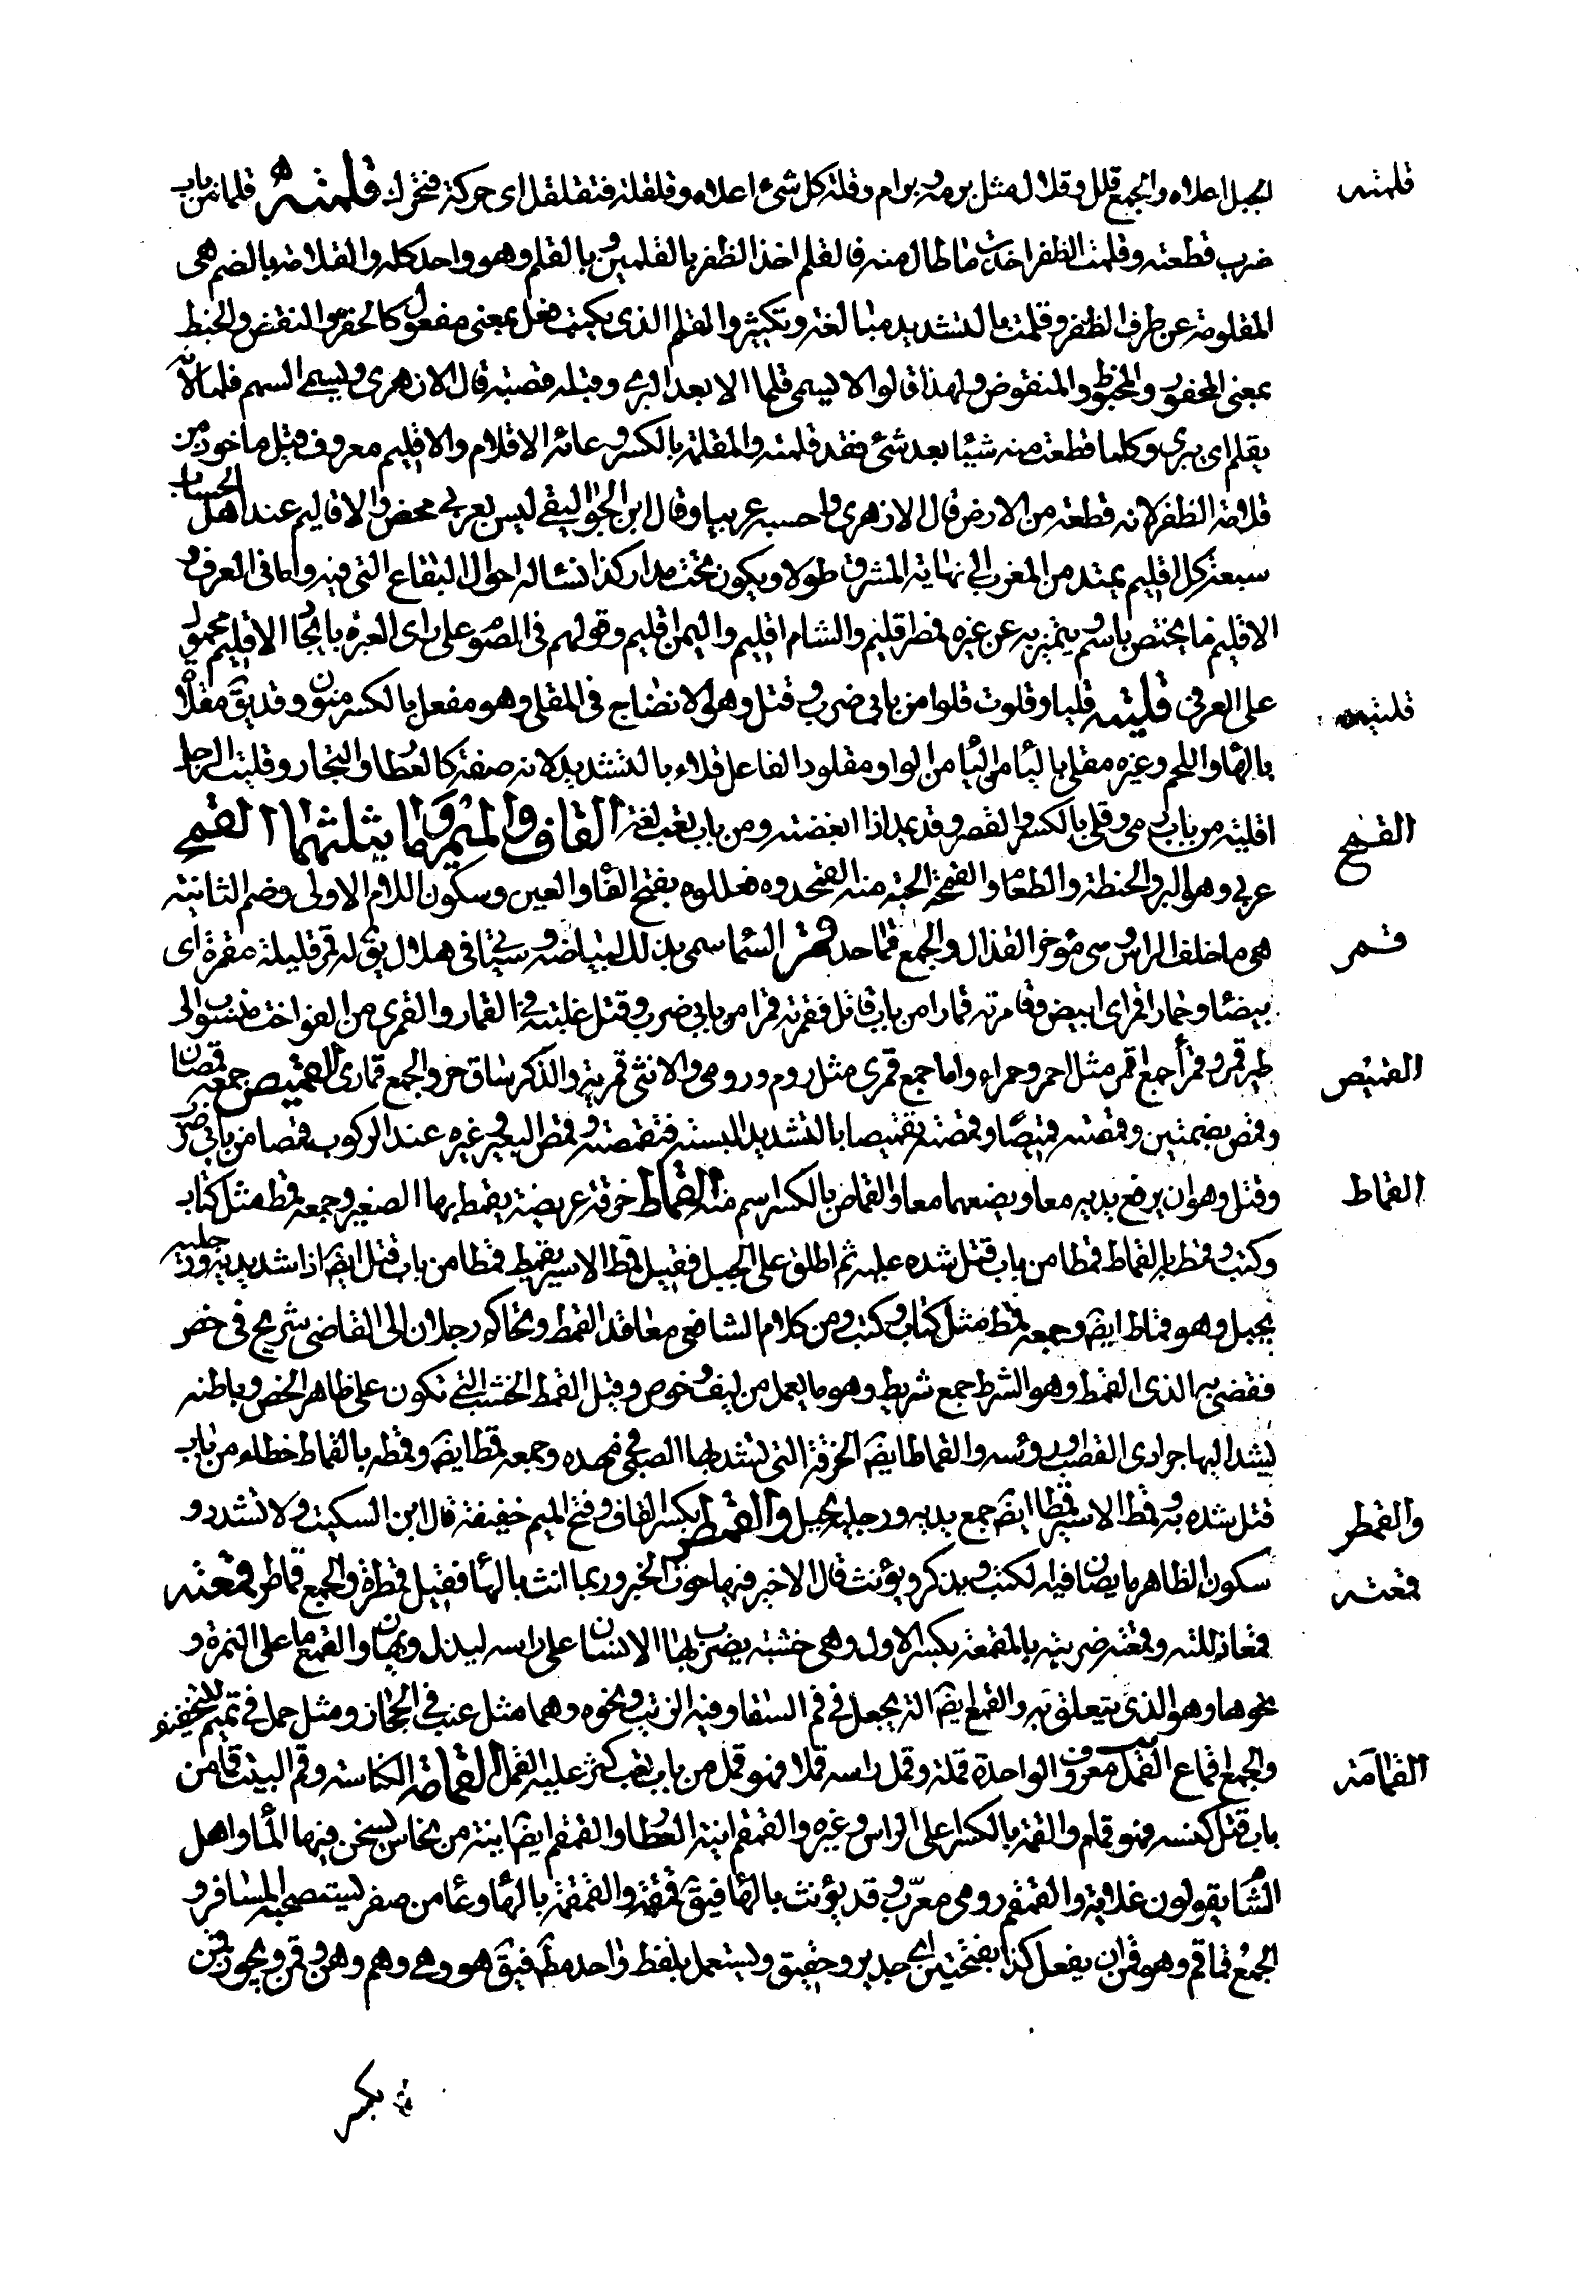 الجبل اعلاه والجمع قلل وقلال مثل برمة وبرام وقلة كل شئ اعلاه وقلقلة فتقلقل اى حركة فتحرك قلمته قلما من باب
قلمته
ضرب قطعته وقلمت الظفر اخذت ما طال منه فالقلم اخذ الظفر بالقلمين وبالقلم وهو واحد كله والقلامة بالضم هى
المقلومة عن طرف الظفر وقلمت بالتشديد مبالغة وتكثير والقلم الذى يكتب فعل بمعنى مفعول كالحفر والنفض والخبط
بمعنى المحفور والمخبوط والمنفوض ولهذا قالوا لا يسمى قلما الا بعد البرى وقبله قصبة قال الازهرى ويسمى السهم قلما لانه
يقلم اى يبرى وكلما قطعت منه شيئا بعد شئ فقد قلمته والمقلمة بالكسر وعاء الاقلام والاقليم معروف قيل ماخوذ من
قلامة الظفر لانه قطعة من الارض قال الازهرى واحسبه عربيا وقال ابن الجواليقى ليس بعربى محض والاقاليم عند اهل الحساب
سبعة كل اقليم يمتد من المغرب الى نهاية المشرق طولا ويكون تحت مدار كذا تشابه احوال البقاع التى فيه واما فى العرف
الاقليم ما يختص باسم ويتميز به عن غيره فمصر اقليم والشام اقليم واليمن اقليم وقولهم فى الصوم على راى العبرة باتحاد الاقليم محمول
على العرفى قليته قليا وقلوت قلوا من بابى ضرب وقتل وهو الانضاج فى المقلى وهو مفعل بالكسر منون وقد يق مقلاة
قليته
بالهاء واللحم وغيره مقلى بالياء من الياء من الواو ومقلو والفاعل قلاء بالتشديد لانه صنعة كالعطار والنجار وقليت الرجل
اقليه من باب رمى وقلى بالكسر والقصر وقد يمد اذا ابغضته ومن باب تعب لغة القاف والميم وما يثلثهما القمح
القمح
عربى وهو البر والحنطة والطعام والقمحة الحبة منه القمحدوه فعللوه بفتح الفاء والعين وسكون اللام الاولى وضم الثانية
هى ما خلف الراس وهى مؤخر القذال والجمع قماحد قمر السماء سمى بذلك لبياضه وسياتى فى هلال يق له قمر قليلة مقمرة اى
قمر
بيضاء وحمار اقمر اى ابيض وقامرته قمارا من باب قاتل فقمرته قمرا من بابى ضرب وقتل غلبته فى القمار والقمرى من الفواخت منسوب الى
طير قمر وقمر أجمع اقمر مثل احمر وحمراء واما جمع قمرى مثل روم ورومى والانثى قمرية والذكر ساق حر والجمع قمارى القميص جمعه قمصان
القميص
وقمص بضمتين وقمصته قميصا وقمصته تقميصا بالتشديد البسته فتقمصه وقمص البعير وغيره عند الركوب قمصا من بابى ضرب
وقتل وهو ان يرفع يديه معا ويضعهما معا والقماص بالكسر اسم منه القماط خرقة عريضة يقمط بها الصغير وجمعه قمط مثل كتاب
القماط
وكتب وقمط بالقماط قمطا من باب قتل شده عليه ثم اطلق على الحبل فقيل قمط الاسير يقمط قمطا من باب قتل ايضا اذا شد يديه ورجليه
بحبل وهو قماط ايضا وجمعه قمط مثل كتاب وكتب ومن كلام الشافعى معاقد القمط وتحاكم رجلان الى القاضى شريح فى خص
فقضى به الذى القمط وهو الشرط جمع شريط وهو ما يعمل من ليف وخوص وقيل القمط الخشب التى تكون على ظاهر الخص وباطنه
يشد اليها جرادى القصب ورؤسه والقماط ايضا الخرقة التى تشد بها الصبى فى مهده وجمعه قمط ايضا وقمطه بالقماط خطله من باب
قتل شده به وقمط الاسير قمطا ايضا جمع يديه ورجليه بحبل والقمطر بكسر القاف وفتح الميم خفيفة قال ابن السكيت ولا تشدد و
والقمطر
سكون الطاء هو ما يصان فيه الكتب ويذكر ويؤنث قال لا خير فيما حوت القمطر وربما انث بالهاء فقيل قمطرة والجمع قماطر قمعته
قمعته
قمعا ذللته وقمعته ضربته بالمقمعة بكسر الاول وهى خشبة يضرب بها الانسان على راسه ليذل ويهان والقمع ما على التمرة و
نحوها وهو الذى يتعلق به والقمع ايضا آلة يجعل فى فم السقاء ويصب فيه الزيت ونحوه وهما مثل عنب فى الحجاز ومثل حمل فى تميم للتخفيف
والجمع اقماع القمل معروف الواحدة قملة وقمل راسه قملا فهو قمل من باب تعب كثر عليه القمل القمامة الكناسة وقم البيت قما من
القمامة
باب قتل كنسه فهو قمام والقمة بالكسر اعلى الراس وغيره والقمقم آنية العطار والقمقم ايضا آنية من نحاس يسخن فيها الماء واهل
الشام يقولون غلاية والقمقم رومى معرب وقد يؤنث بالهاء فيق قمقمة والقمقمة بالهاء وعاء من صفر يستصحبه المسافر و
الجمع قماقم وهو قمن ان يفعل كذا بفتحتين اى جدير وحقيق ويستعمل بلفظ واحد مطلقا فيق هو وهى وهم وهن قمن ويجوز قمن
بكسر